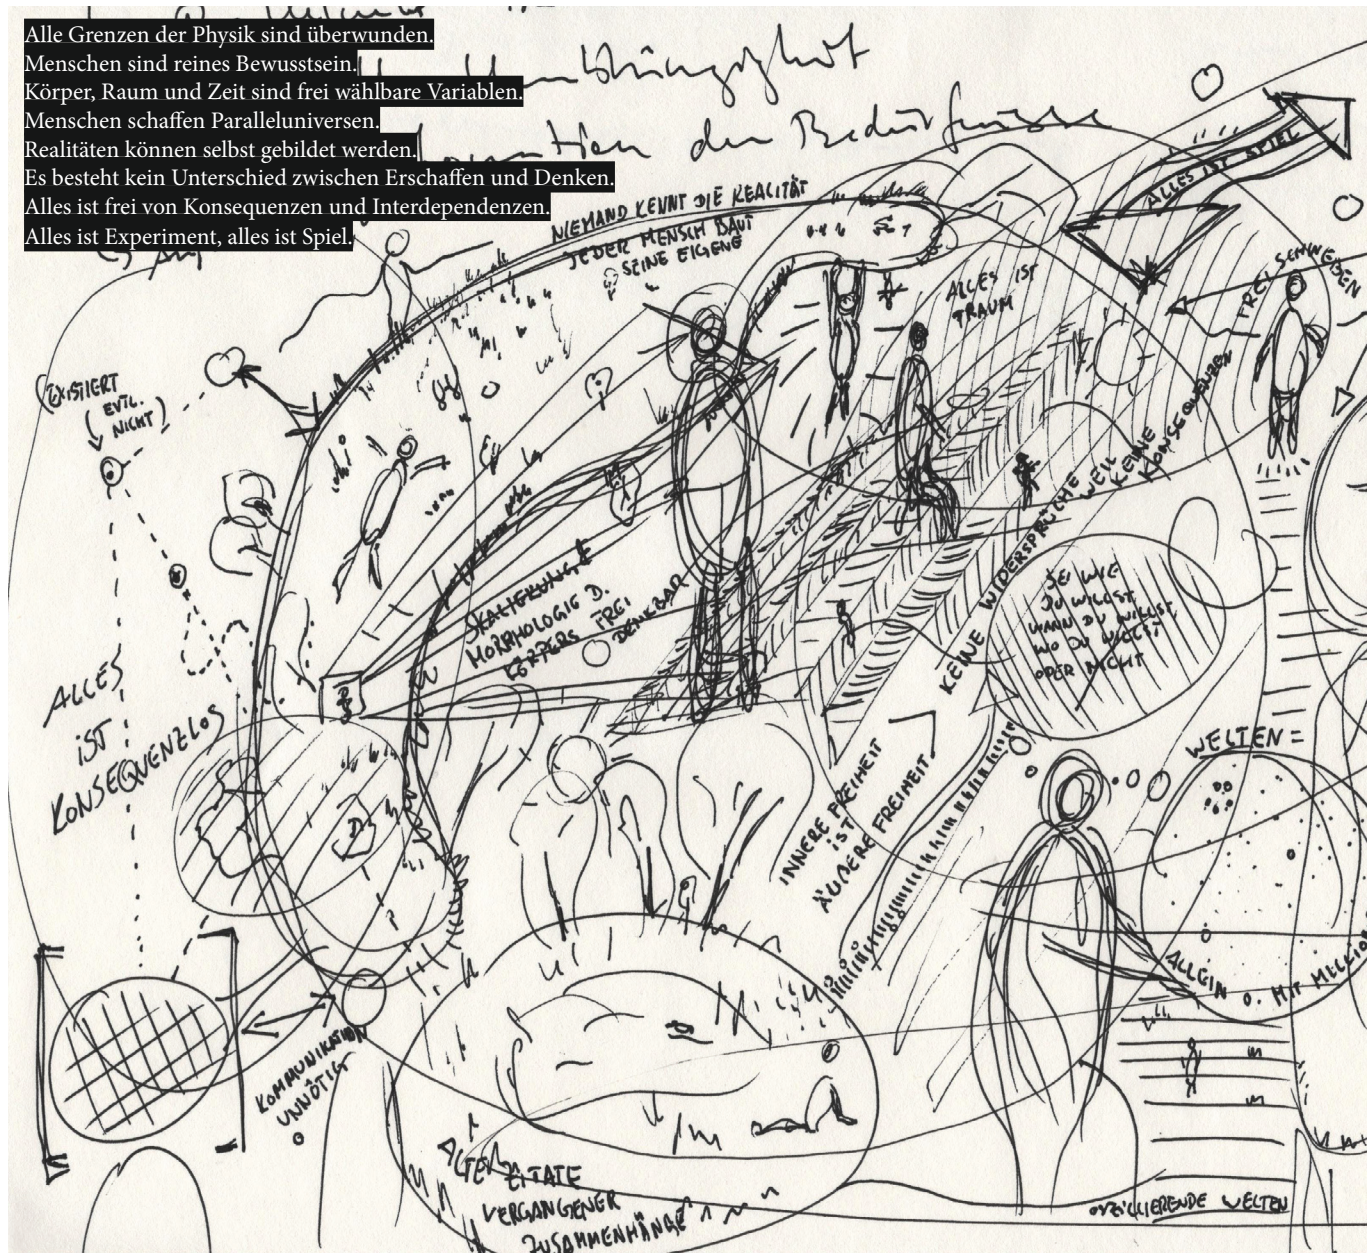 Alle Grenzen der Physik sind überwunden.
Menschen sind reines Bewusstsein.
Körper, Raum und Zeit sind frei wählbare Variablen.
Menschen schaffen Paralleluniversen.
Realitäten können selbst gebildet werden.
Es besteht kein Unterschied zwischen Erschaffen und Denken.
Alles ist frei von Konsequenzen und Interdependenzen.
Alles ist Experiment, alles ist Spiel.
der Bedürfnisse
ALLES IST SPIEL
NIEMAND KENNT DIE REALITÄT
JEDER MENSCH BAUT
SEINE EIGENE
ALLES IST
TRAUM
FREI SCHWEBEN
EXISTIERT
(EVTL.
NICHT)
SKALIERUNG &
MORPHOLOGIE D.
KÖRPERS FREI
DENKBAR
KEINE WIDERSPRÜCHE WEIL
KEINE
KONSEQUENZEN
SEI WIE
DU WILLST
WANN DU WILLST
WO DU WILLST
ODER NICHT
ALLES
IST
KONSEQUENZLOS
WELTEN =
INNERE FREIHEIT
IST
ÄUßERE FREIHEIT
ALLEIN O. MIT
KOMMUNIKATION
UNNÖTIG
ALTE ZITATE
VERGANGENER
ZUSAMMENHÄNGE
OSZILLIERENDE WELTEN